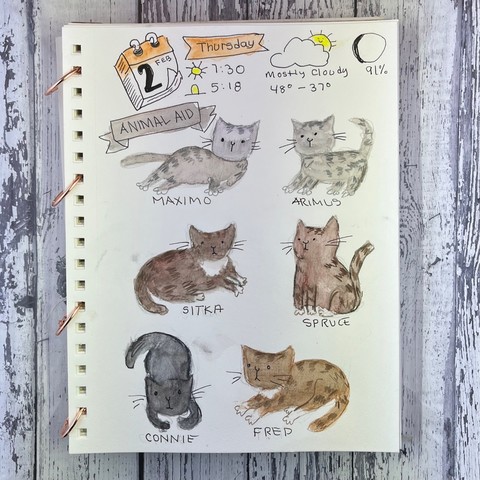 2 FEB
Thursday
7:30
5:18
Mostly Cloudy
48° - 37°
91%
ANIMAL AID
MAXIMO
ARIMUS
SITKA
SPRUCE
CONNIE
FRED